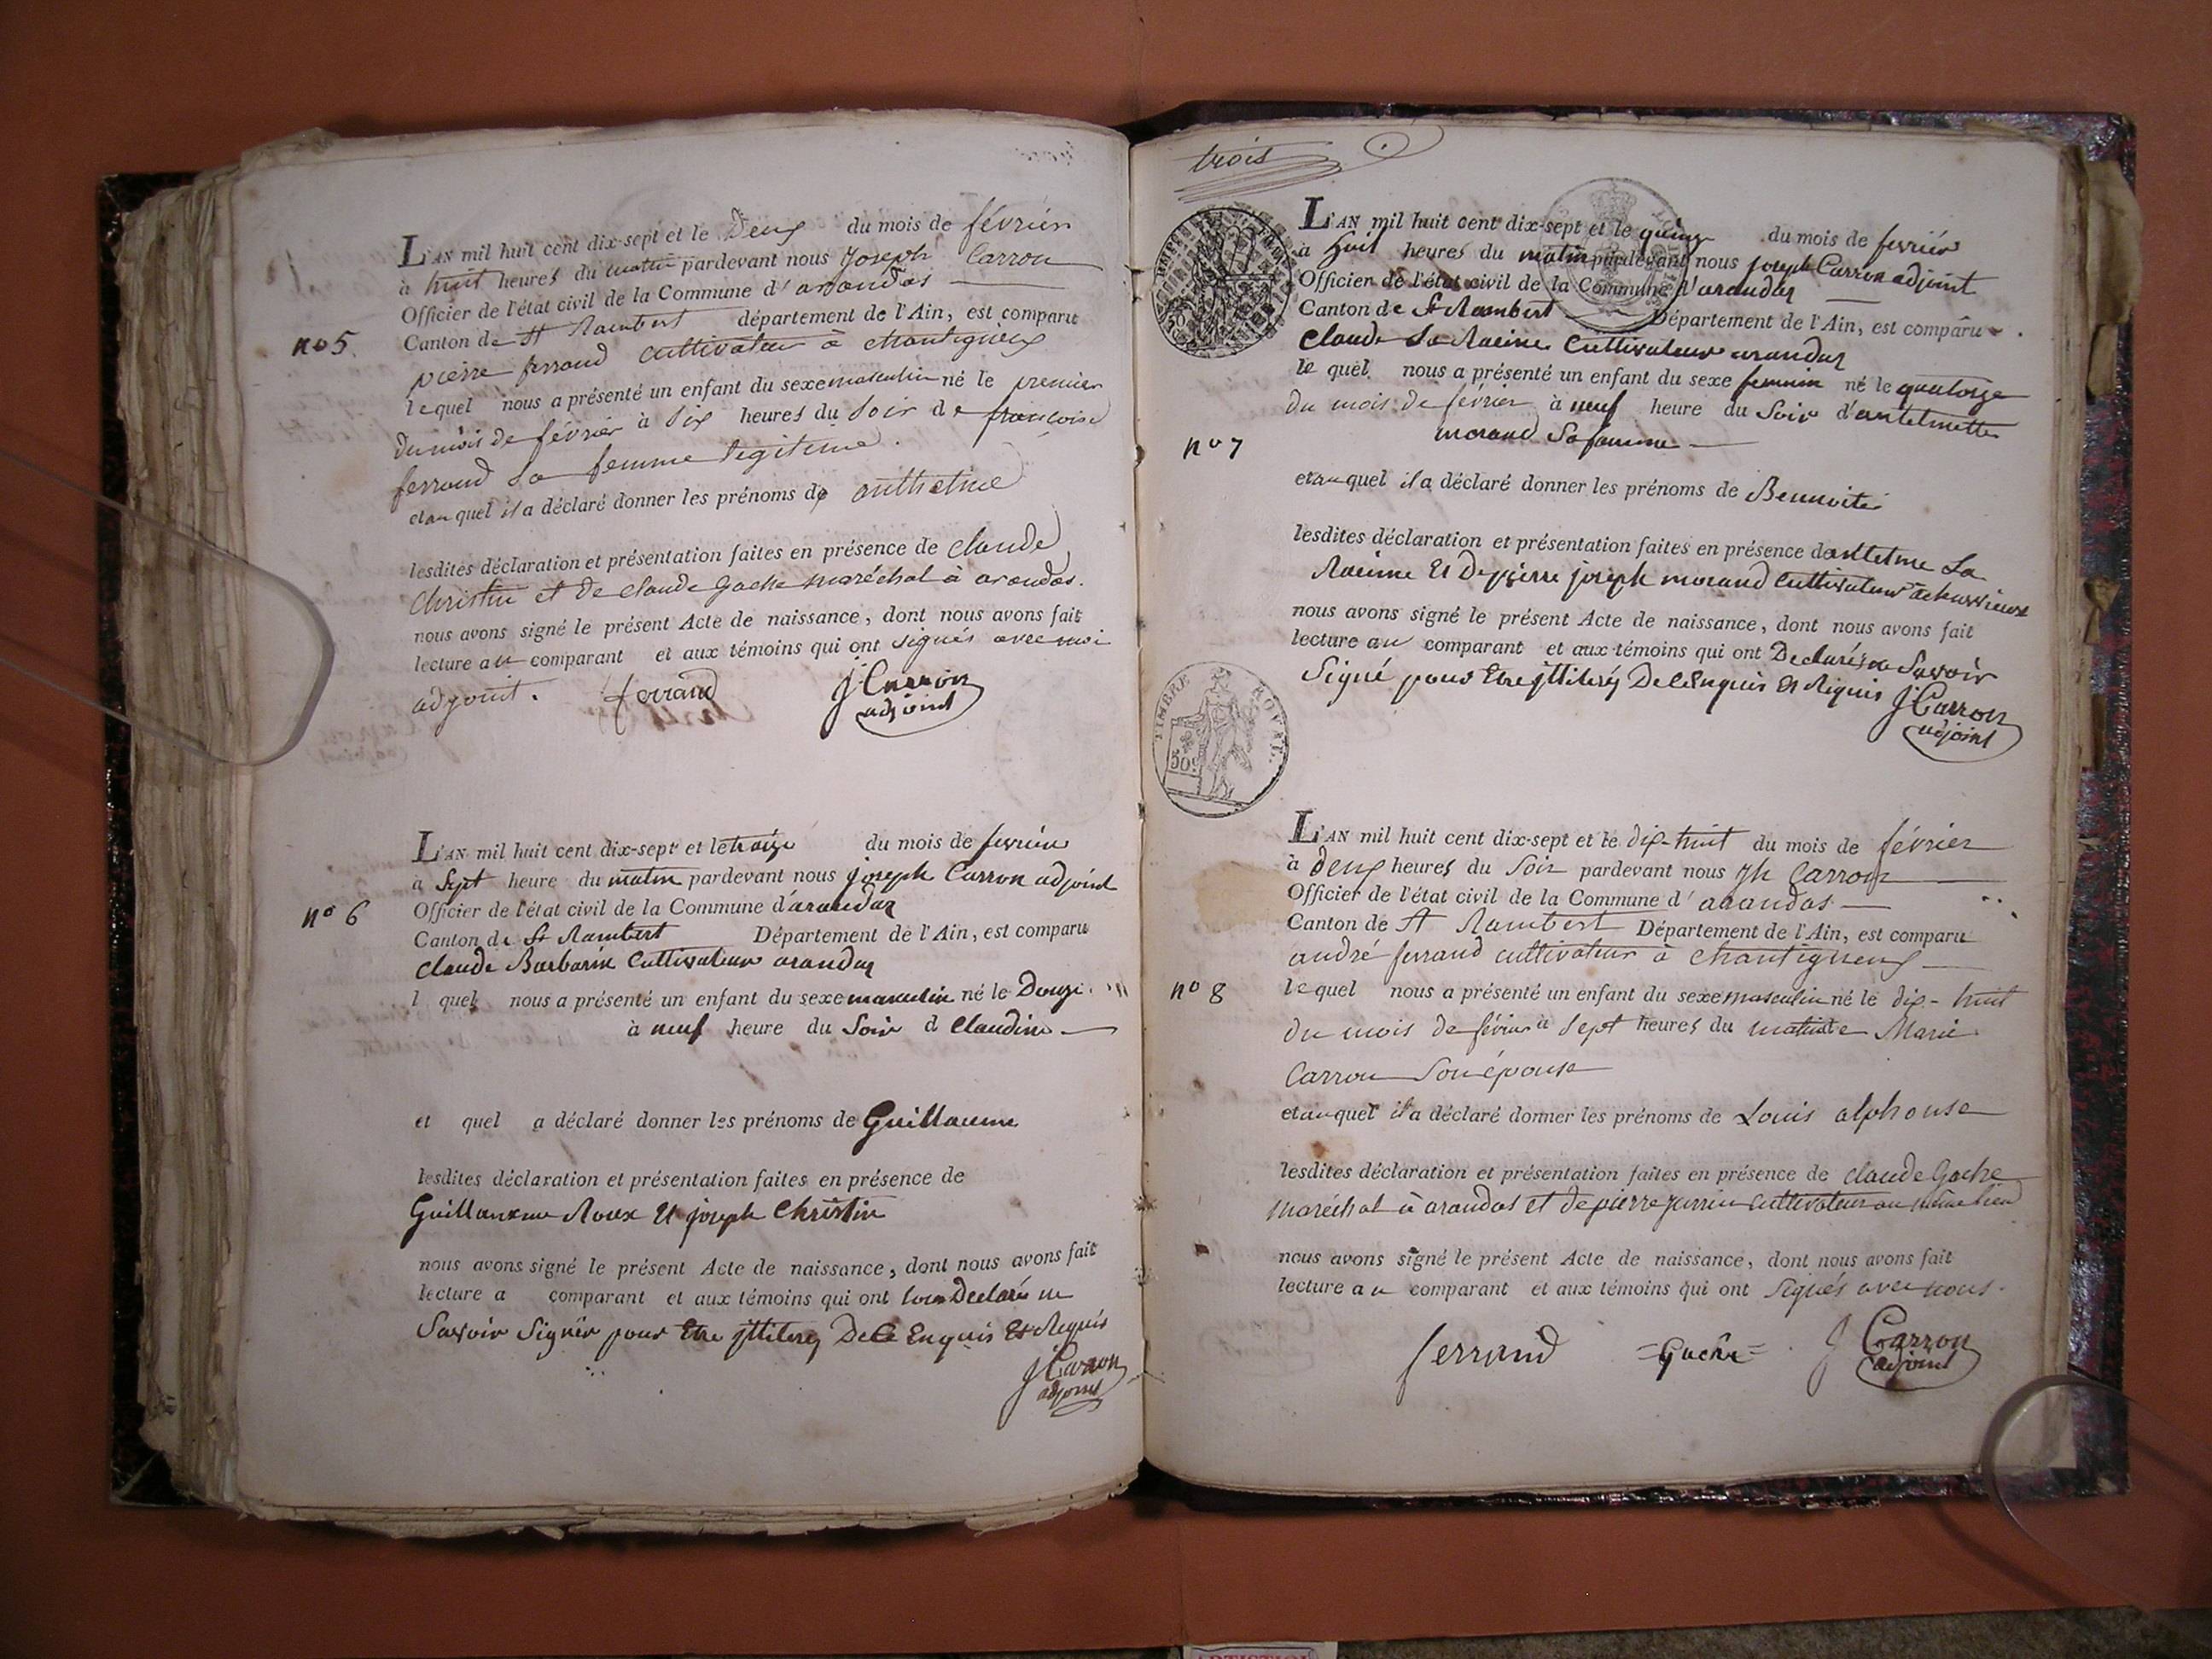 L'AN mil huit cent dix-sept et le Deux du mois de février
à huit heures du matin pardevant nous Joseph Carron
Officier de l'état civil de la Commune d'arandas
nº 5.
Canton de St Rambert département de l'Ain, est comparu
pierre ferrand cultivateur à chantigneux
lequel nous a présenté un enfant du sexe masculin né le premier
du mois de février à Six heures du Soir de francoise
ferrand Sa femme legitime.
et au quel il a déclaré donner les prénoms de anthelme
lesdites déclaration et présentation faites en présence de claude
Christin et de claude gache maréchal à arandas.
nous avons signé le présent Acte de naissance, dont nous avons fait
lecture au comparant et aux témoins qui ont signés avec moi
adjoint. ferrand J. Carron
adjoint
L'AN mil huit cent dix-sept et le traize du mois de fevrier
à Sept heure du matin pardevant nous joseph Carron adjoint
nº 6
Officier de l'état civil de la Commune d'arandas
Canton de St Rambert Département de l'Ain, est comparu
claude Barbarin Cultivateur arandas
l quel nous a présenté un enfant du sexe masculin né le Douze
à neuf heure du Soir d Claudine
et quel a déclaré donner les prénoms de Guillaume
lesdites déclaration et présentation faites en présence de
Guillaume Roux Et joseph Christin
nous avons signé le présent Acte de naissance, dont nous avons fait
lecture a comparant et aux témoins qui ont Declaré ne
Savoir Signer pour Etre illiterés De ce Enquis Et Requis
J. Carron
adjoint
trois
L'AN mil huit cent dix-sept et le quinze du mois de fevriér
à huit heures du matin pardevant nous joseph Carron adjoint
Officier de l'état civil de la Commune d'arandas
Canton de St Rambert Département de l'Ain, est compâru
Claude La Racine Cultivateur arandas
le quel nous a présenté un enfant du sexe feminin né le quatorze
du mois de février à neuf heure du Soir d'antelmette
nº 7
morand Sa femme
et au quel il a déclaré donner les prénoms de Bennoite
lesdites déclaration et présentation faites en présence dantelme La
Racine Et De pierre joseph morand Cultivateur
nous avons signé le présent Acte de naissance, dont nous avons fait
lecture au comparant et aux témoins qui ont Declarés ne Savoir
Signé pour Etre illiterés De ce Enquis Et Requis J. Carron
adjoint
TIMBRE ROYAL
50c
L'AN mil huit cent dix-sept et le dix-huit du mois de février
à deux heures du Soir pardevant nous Jh Carron
Officier de l'état civil de la Commune d'arandas
Canton de St Rambert Département de l'Ain, est comparu
andré ferrand cultivateur à chantigneux
nº 8
lequel nous a présenté un enfant du sexe masculin né le dix-huit
du mois de février à Sept heures du matin de Marie
Carron Son épouse
et au quel il a déclaré donner les prénoms de Louis alphonse
lesdites déclaration et présentation faites en présence de claude Gache
maréchal à arandas et de pierre perrin cultivateur au même lieu
nous avons signé le présent Acte de naissance, dont nous avons fait
lecture au comparant et aux témoins qui ont Signés avec nous.
ferrand =Gache= J Carron
adjoint